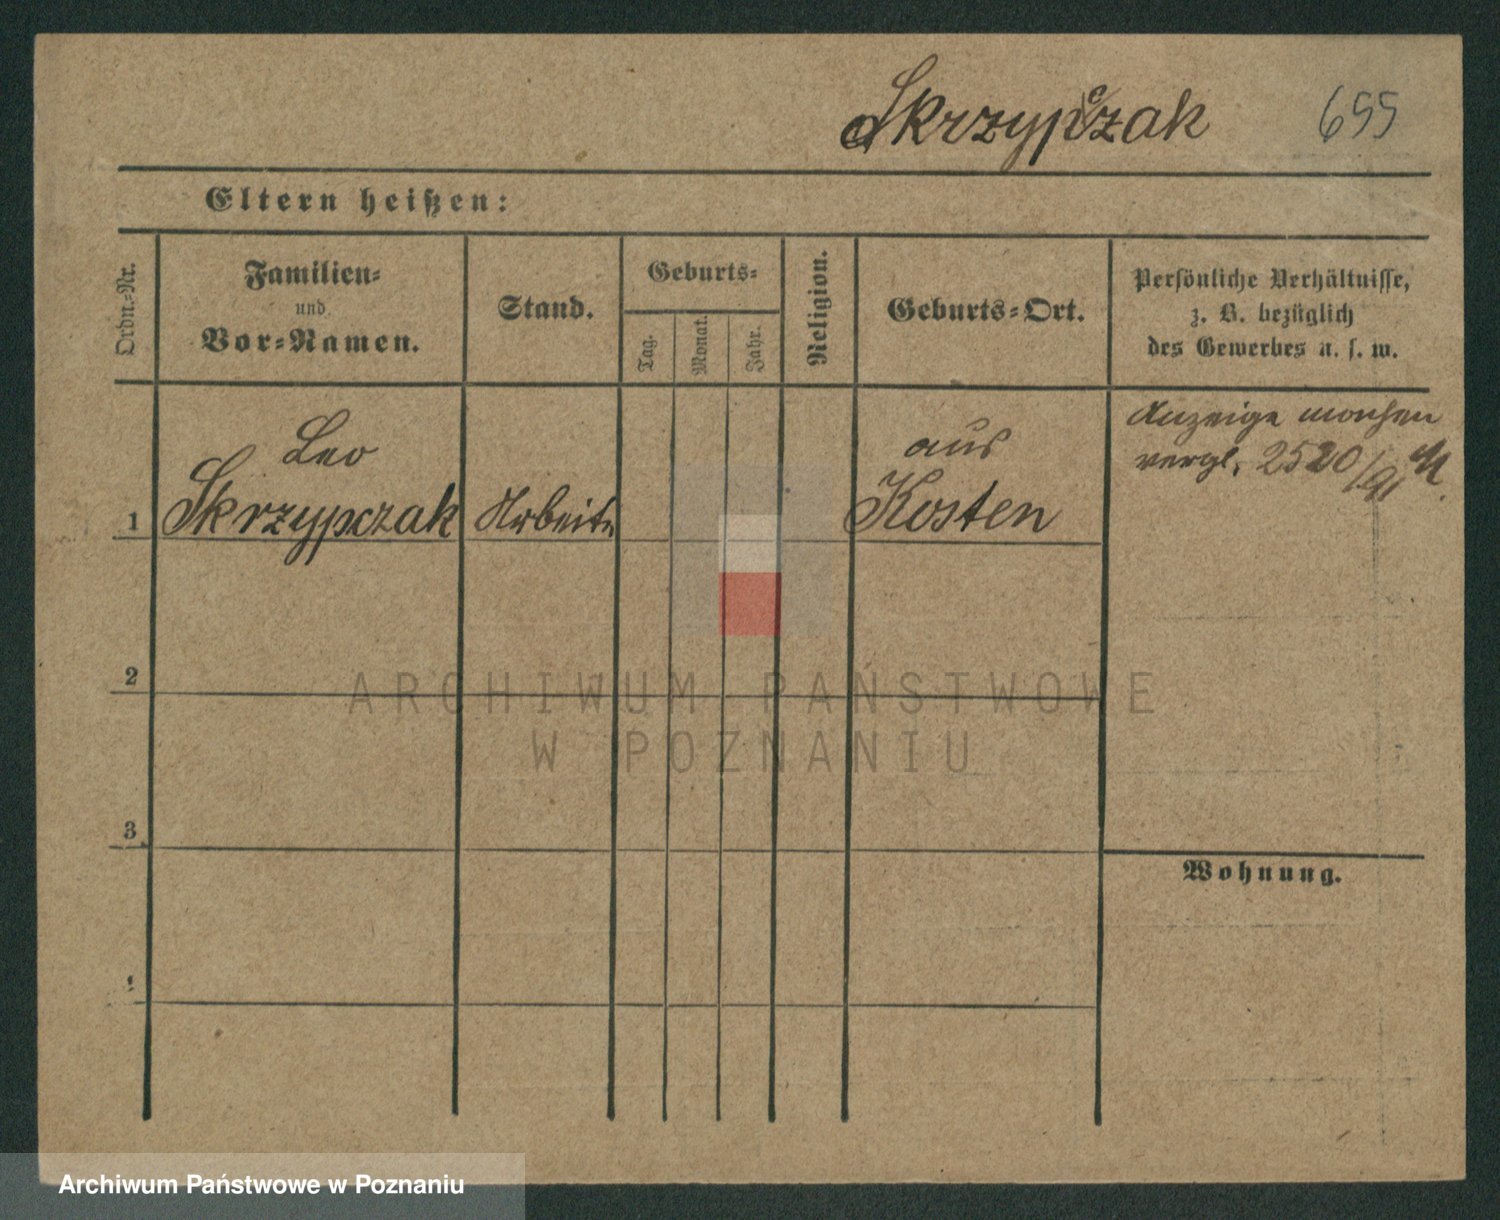 Skrzypczak 655
Eltern heißen:
Ordn.-Nr.
Familien-
und
Vor-Namen.
Stand.
Geburts-
Tag.
Monat.
Jahr.
Religion.
Geburts-Ort.
Persönliche Verhältnisse,
z. B. bezüglich
des Gewerbes u. s. w.
1
Leo
Skrzypczak
Arbeiter
aus
Kosten
Anzeige
vergl. 2520/91
2
3
Wohnung.
ARCHIWUM PAŃSTWOWE
W POZNANIU
Archiwum Państwowe w Poznaniu